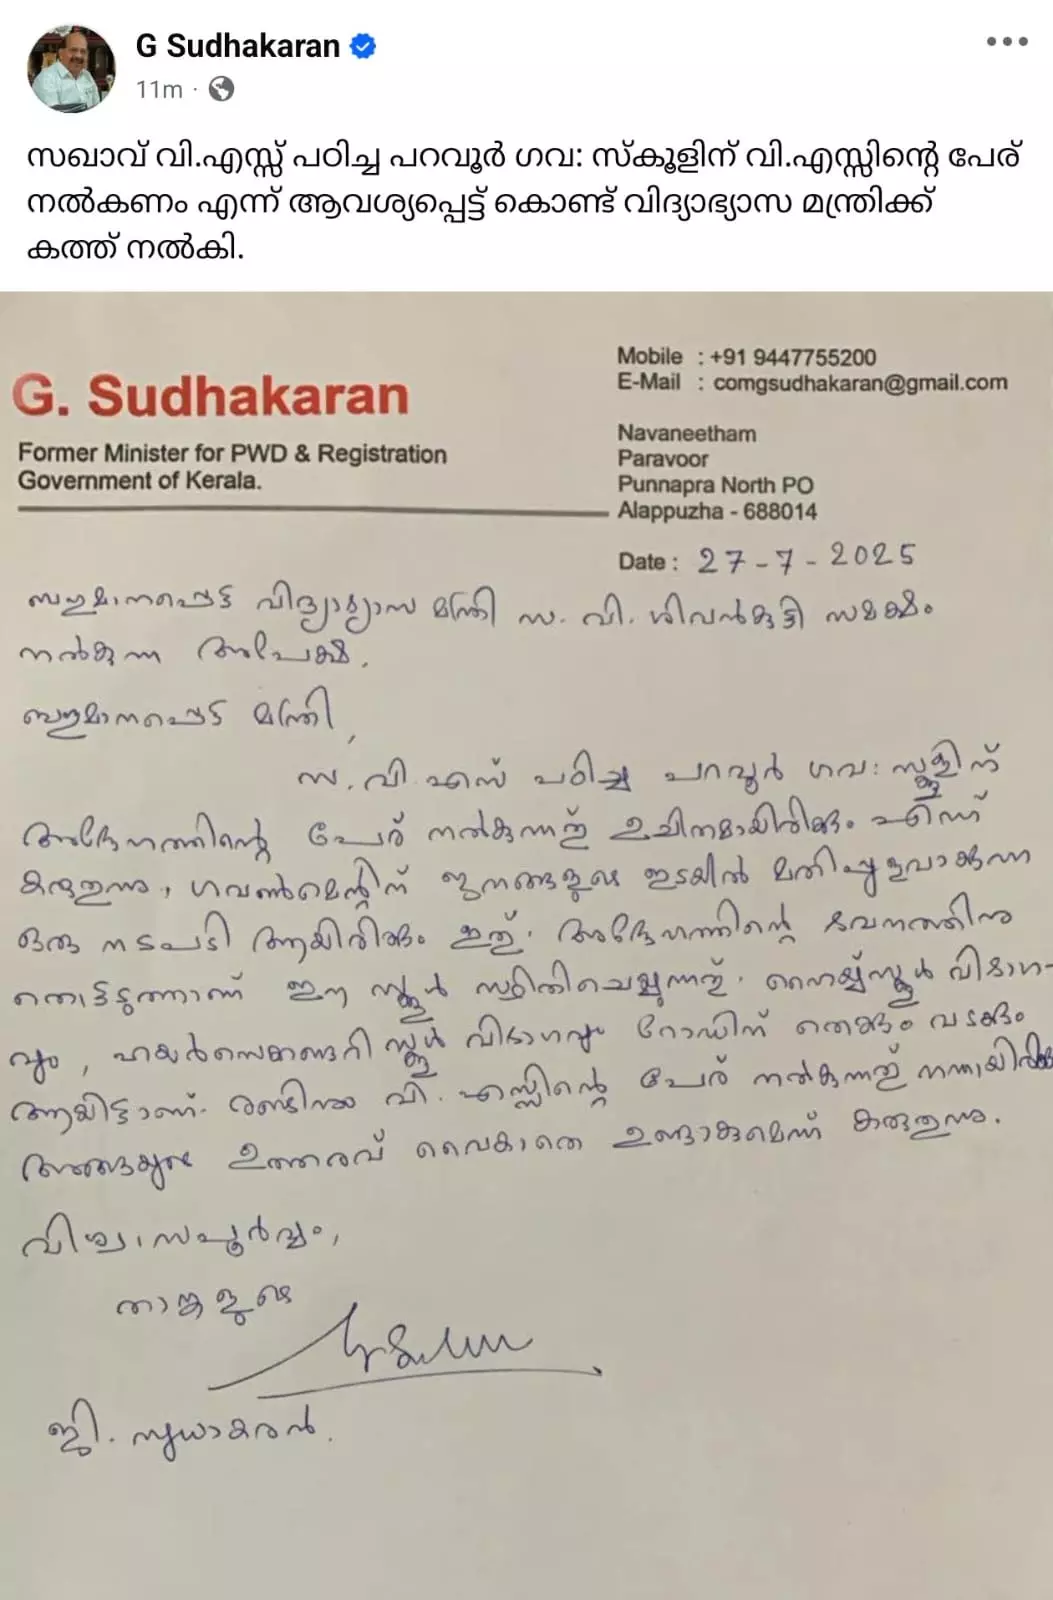 G Sudhakaran
11m ·
സഖാവ് വി.എസ്സ് പഠിച്ച പറവൂർ ഗവ: സ്കൂളിന് വി.എസ്സിന്റെ പേര്
നൽകണം എന്ന് ആവശ്യപ്പെട്ട് കൊണ്ട് വിദ്യാഭ്യാസ മന്ത്രിക്ക്
കത്ത് നൽകി.
G. Sudhakaran
Former Minister for PWD & Registration
Government of Kerala.
Mobile : +91 9447755200
E-Mail : comgsudhakaran@gmail.com
Navaneetham
Paravoor
Punnapra North PO
Alappuzha - 688014
Date : 27-7-2025
ബഹുമാനപ്പെട്ട വിദ്യാഭ്യാസ മന്ത്രി സ. വി. ശിവൻകുട്ടി സമക്ഷം
നൽകുന്ന അപേക്ഷ.
ബഹുമാനപ്പെട്ട മന്ത്രി,
സ. വി. എസ് പഠിച്ച പറവൂർ ഗവ: സ്കൂളിന്
അദ്ദേഹത്തിന്റെ പേര് നൽകുന്നത് ഉചിതമായിരിക്കും എന്ന്
കരുതുന്നു, ഗവൺമെന്റിന് ജനങ്ങളുടെ ഇടയിൽ മതിപ്പുളവാക്കുന്ന
ഒരു നടപടി ആയിരിക്കും ഇത്. അദ്ദേഹത്തിന്റെ ഭവനത്തിനു
തൊട്ടടുത്താണ് ഈ സ്കൂൾ സ്ഥിതിചെയ്യുന്നത്. ഹൈസ്കൂൾ വിഭാഗ-
വും, ഹയർസെക്കണ്ടറി സ്കൂൾ വിഭാഗവും റോഡിന് തെക്കും വടക്കും
ആയിട്ടാണ്. രണ്ടിനും വി. എസ്സിന്റെ പേര് നൽകുന്നത് നന്നായിരിക്കും
അങ്ങയുടെ ഉത്തരവ് വൈകാതെ ഉണ്ടാകുമെന്ന് കരുതുന്നു.
വിശ്വാസപൂർവ്വം,
താങ്കളുടെ
ജി. സുധാകരൻ.